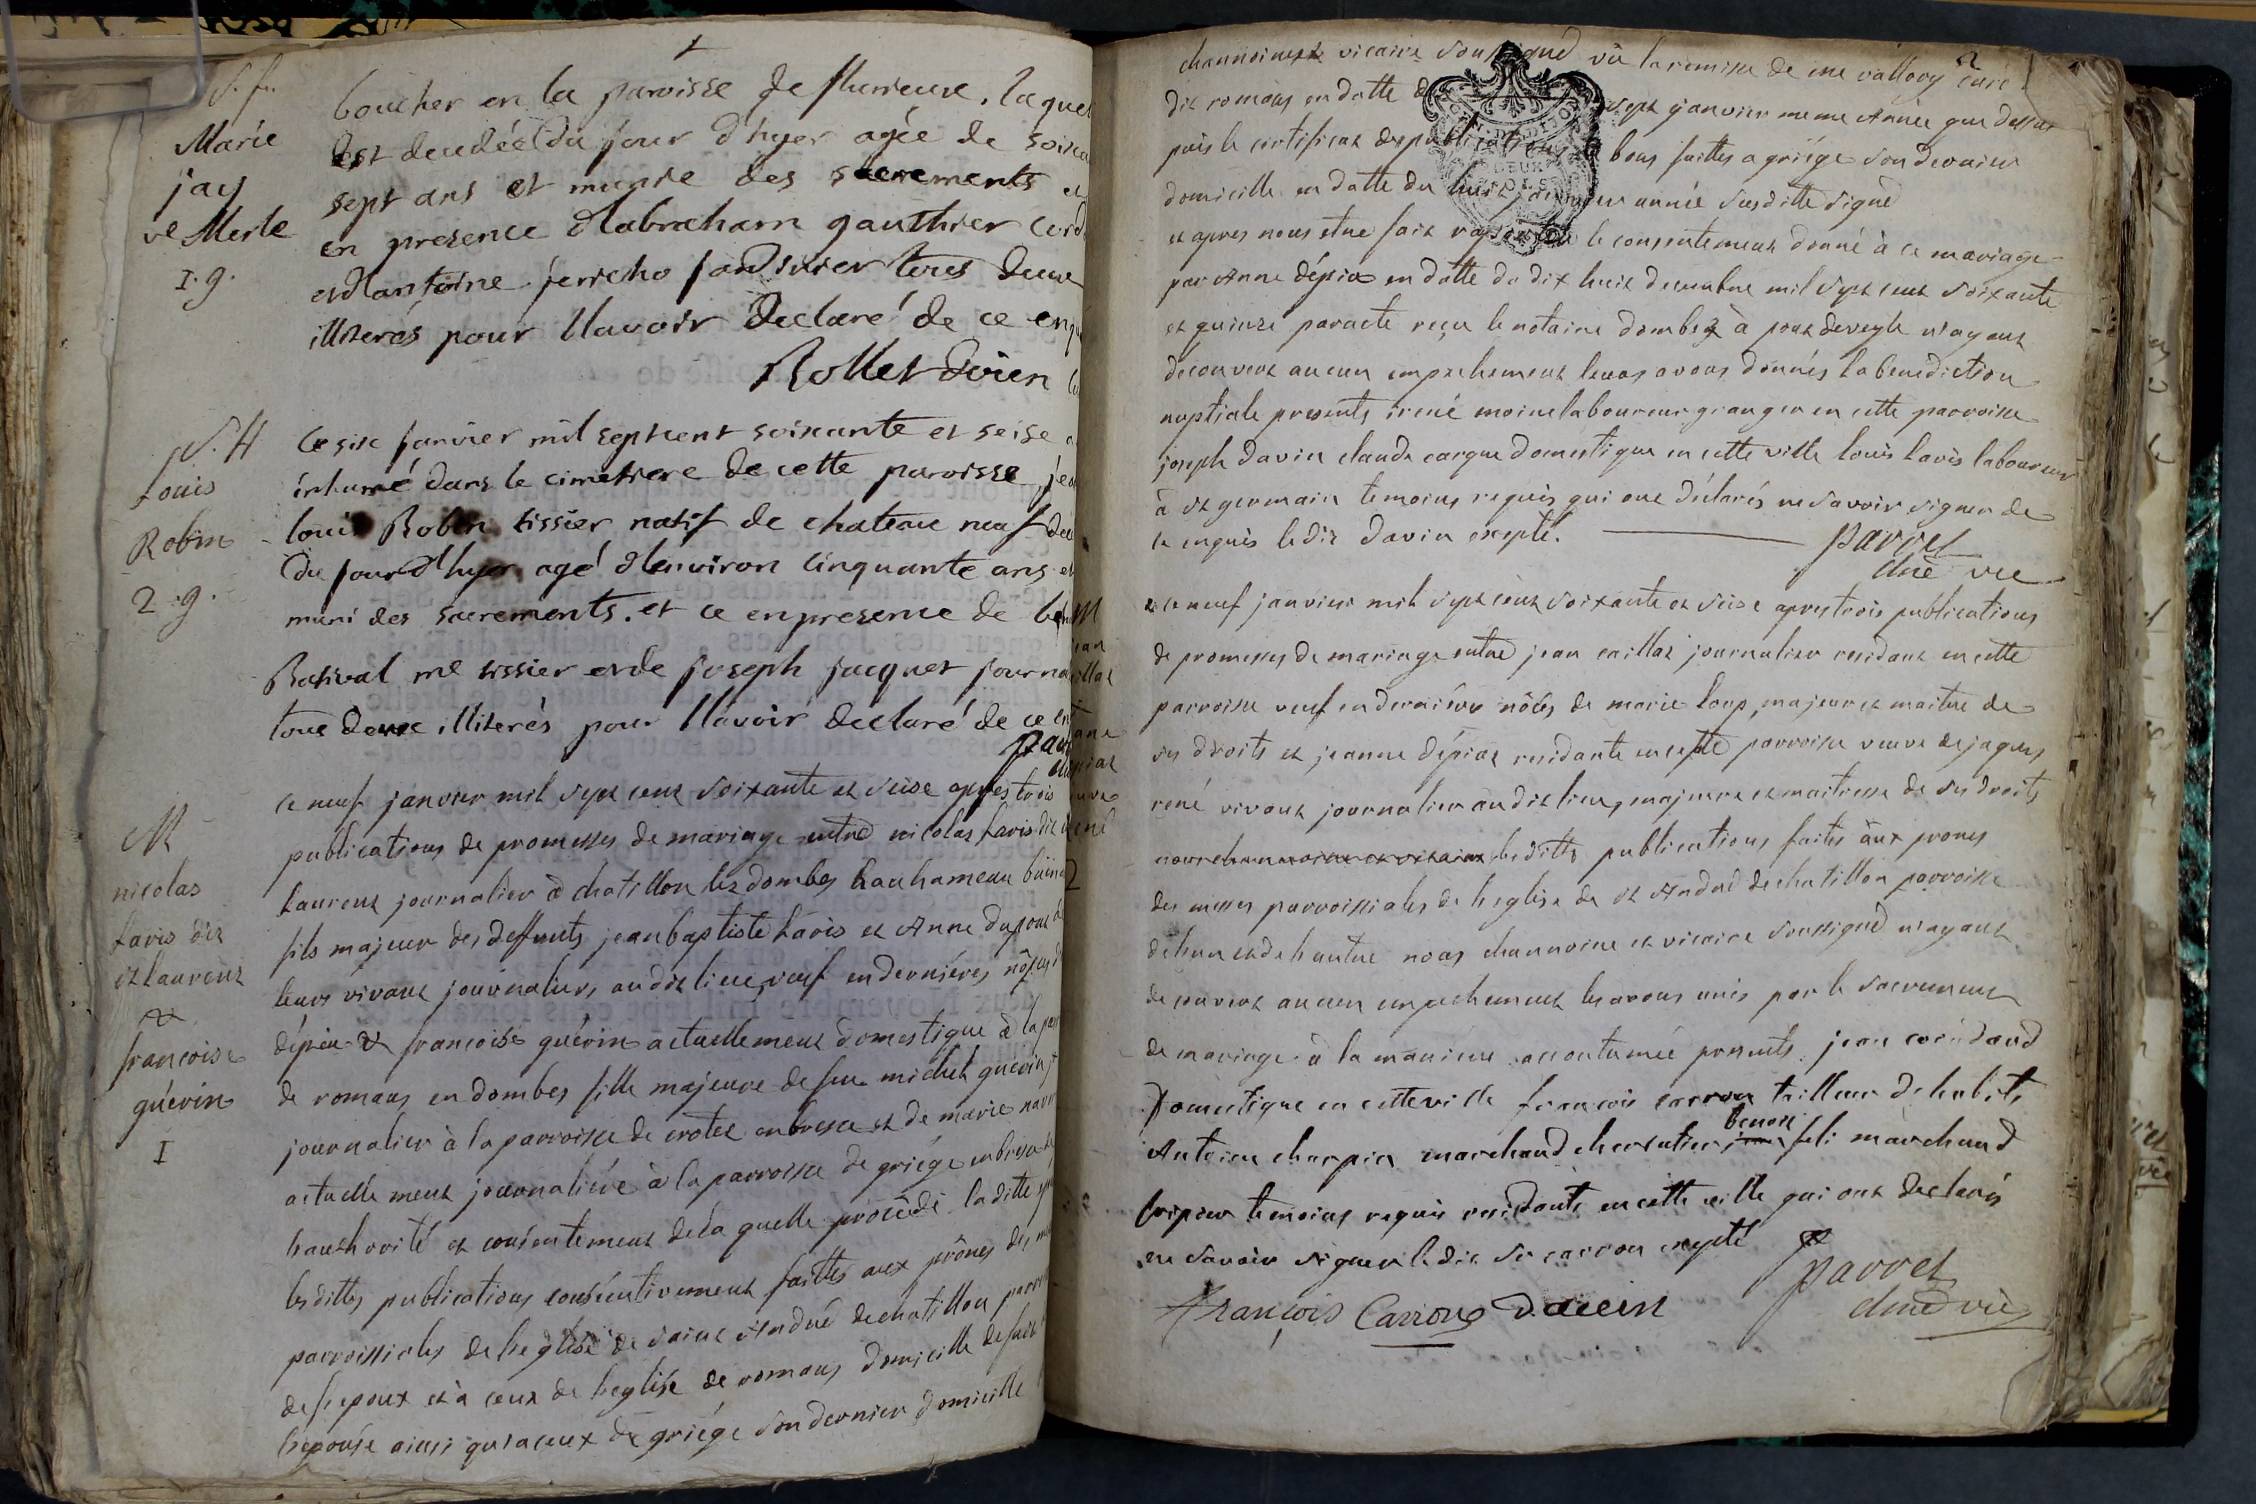 S. f.
Marie
jay
ve Merle
1. g.
boucher en la paroisse de flurieux, laquel
est decedée du jour d'hyer agée de soixa
sept ans et munie des sacrements et
en presence d'abraham gauthier cord
et d'antoine jericho jardinier tous deux
illiterés pour l'avoir declaré de ce enq
Rollet doien
S. H
Louis
Robin
2. g.
Ce six janvier mil septcent soixante et seise a
inhumé dans le cimetiere de cette paroisse, jea
louis Robin tissier natif de chateau neuf dec
du jour d'hyer agé d'environ cinquante ans et
muni des sacrements. et ce en presence de
Bativat me tissier et de joseph jacquet journa
tous deux illiterés pour l'avoir declaré de ce en
par
M
nicolas
lavis dit
st laurent
&
francoise
guérin
1
ce neuf janvier mil sept cent soixante et seise après trois
publications de promesses de mariage entre nicolas lavis dit
laurent journalier à chatillon les dombes hameau
fils majeur des deffunts jean baptiste lavis et Anne dupont de
leurs vivant journaliers audit lieu, veuf en dernières nôces d
dépia & francoise guérin actuellement domestique à la par
de romans en dombes fille majeure de feu michel guérin
journalier à la parroisse de crotet en bresse et de marie
actuellement journalière à la parroisse de griége en bresse de
l'authorité et consentement de la quelle procède la ditte
les dittes publications consécutivement faittes aux prônes des m
parroissiales de l'eglise de saint André de chatillon parro
de l'epoux et à ceux de l'eglise de romans domicille de fait
l'epouse ainsi qu'a ceux de griége son dernier domicille
2
channoine et vicaire soussigné vû la remise de me vallory curé
dit romans en datte du sept janvier meme année que dessus
puis le certificat de publications de bans faittes a griége son dernier
domicille en datte du huit janvier année susditte signé
et apres nous etre fait représenter le consentement donné à ce mariage
par Anne dépia en datte du dix huit decembre mil sept cent soixante
et quinze par acte reçu le notaire dombez à pont de veyle n'ayant
decouvert aucun empechement leurs avons donnés la benediction
nuptiale presents irené moine laboureur granger en cette parroisse
joseph davin claude carque domestique en cette ville louis lavis laboureur
à st germain temoins requis qui ont déclarés ne savoir signer de
ce enquis le dit davin excepté. parret
chne vic
ce neuf janvier mil sept cent soixante et seise apres trois publications
de promesses de mariage entre jean caillat journalier residant en cette
parroisse veuf en dernières nôces de marie loup, majeur et maitre de
ses droits et jeanne dépiaz residante en cette parroisse veuve de jaques
rené vivant journalier audit lieu, majeure et maitresse de ses droits
nous channoine et vicaire les dittes publications faites aux prones
des messes parroissiales de l'eglise de st André de chatillon parroisse
de l'un et de l'autre nous channoine et vicaire soussigné n'ayant
decouvert aucun empechement les avons unis par le sacrement
de mariage à la manière accoutumée presents jean
domestique en cette ville françois carron tailleur d'habits
Antoine charpin marchand charcutier, benoit feli marchand
fripier temoins requis residants en cette ville qui ont declarés
ne savoir signer le dit sr carron excepté parret
François Carron Davin chne vic